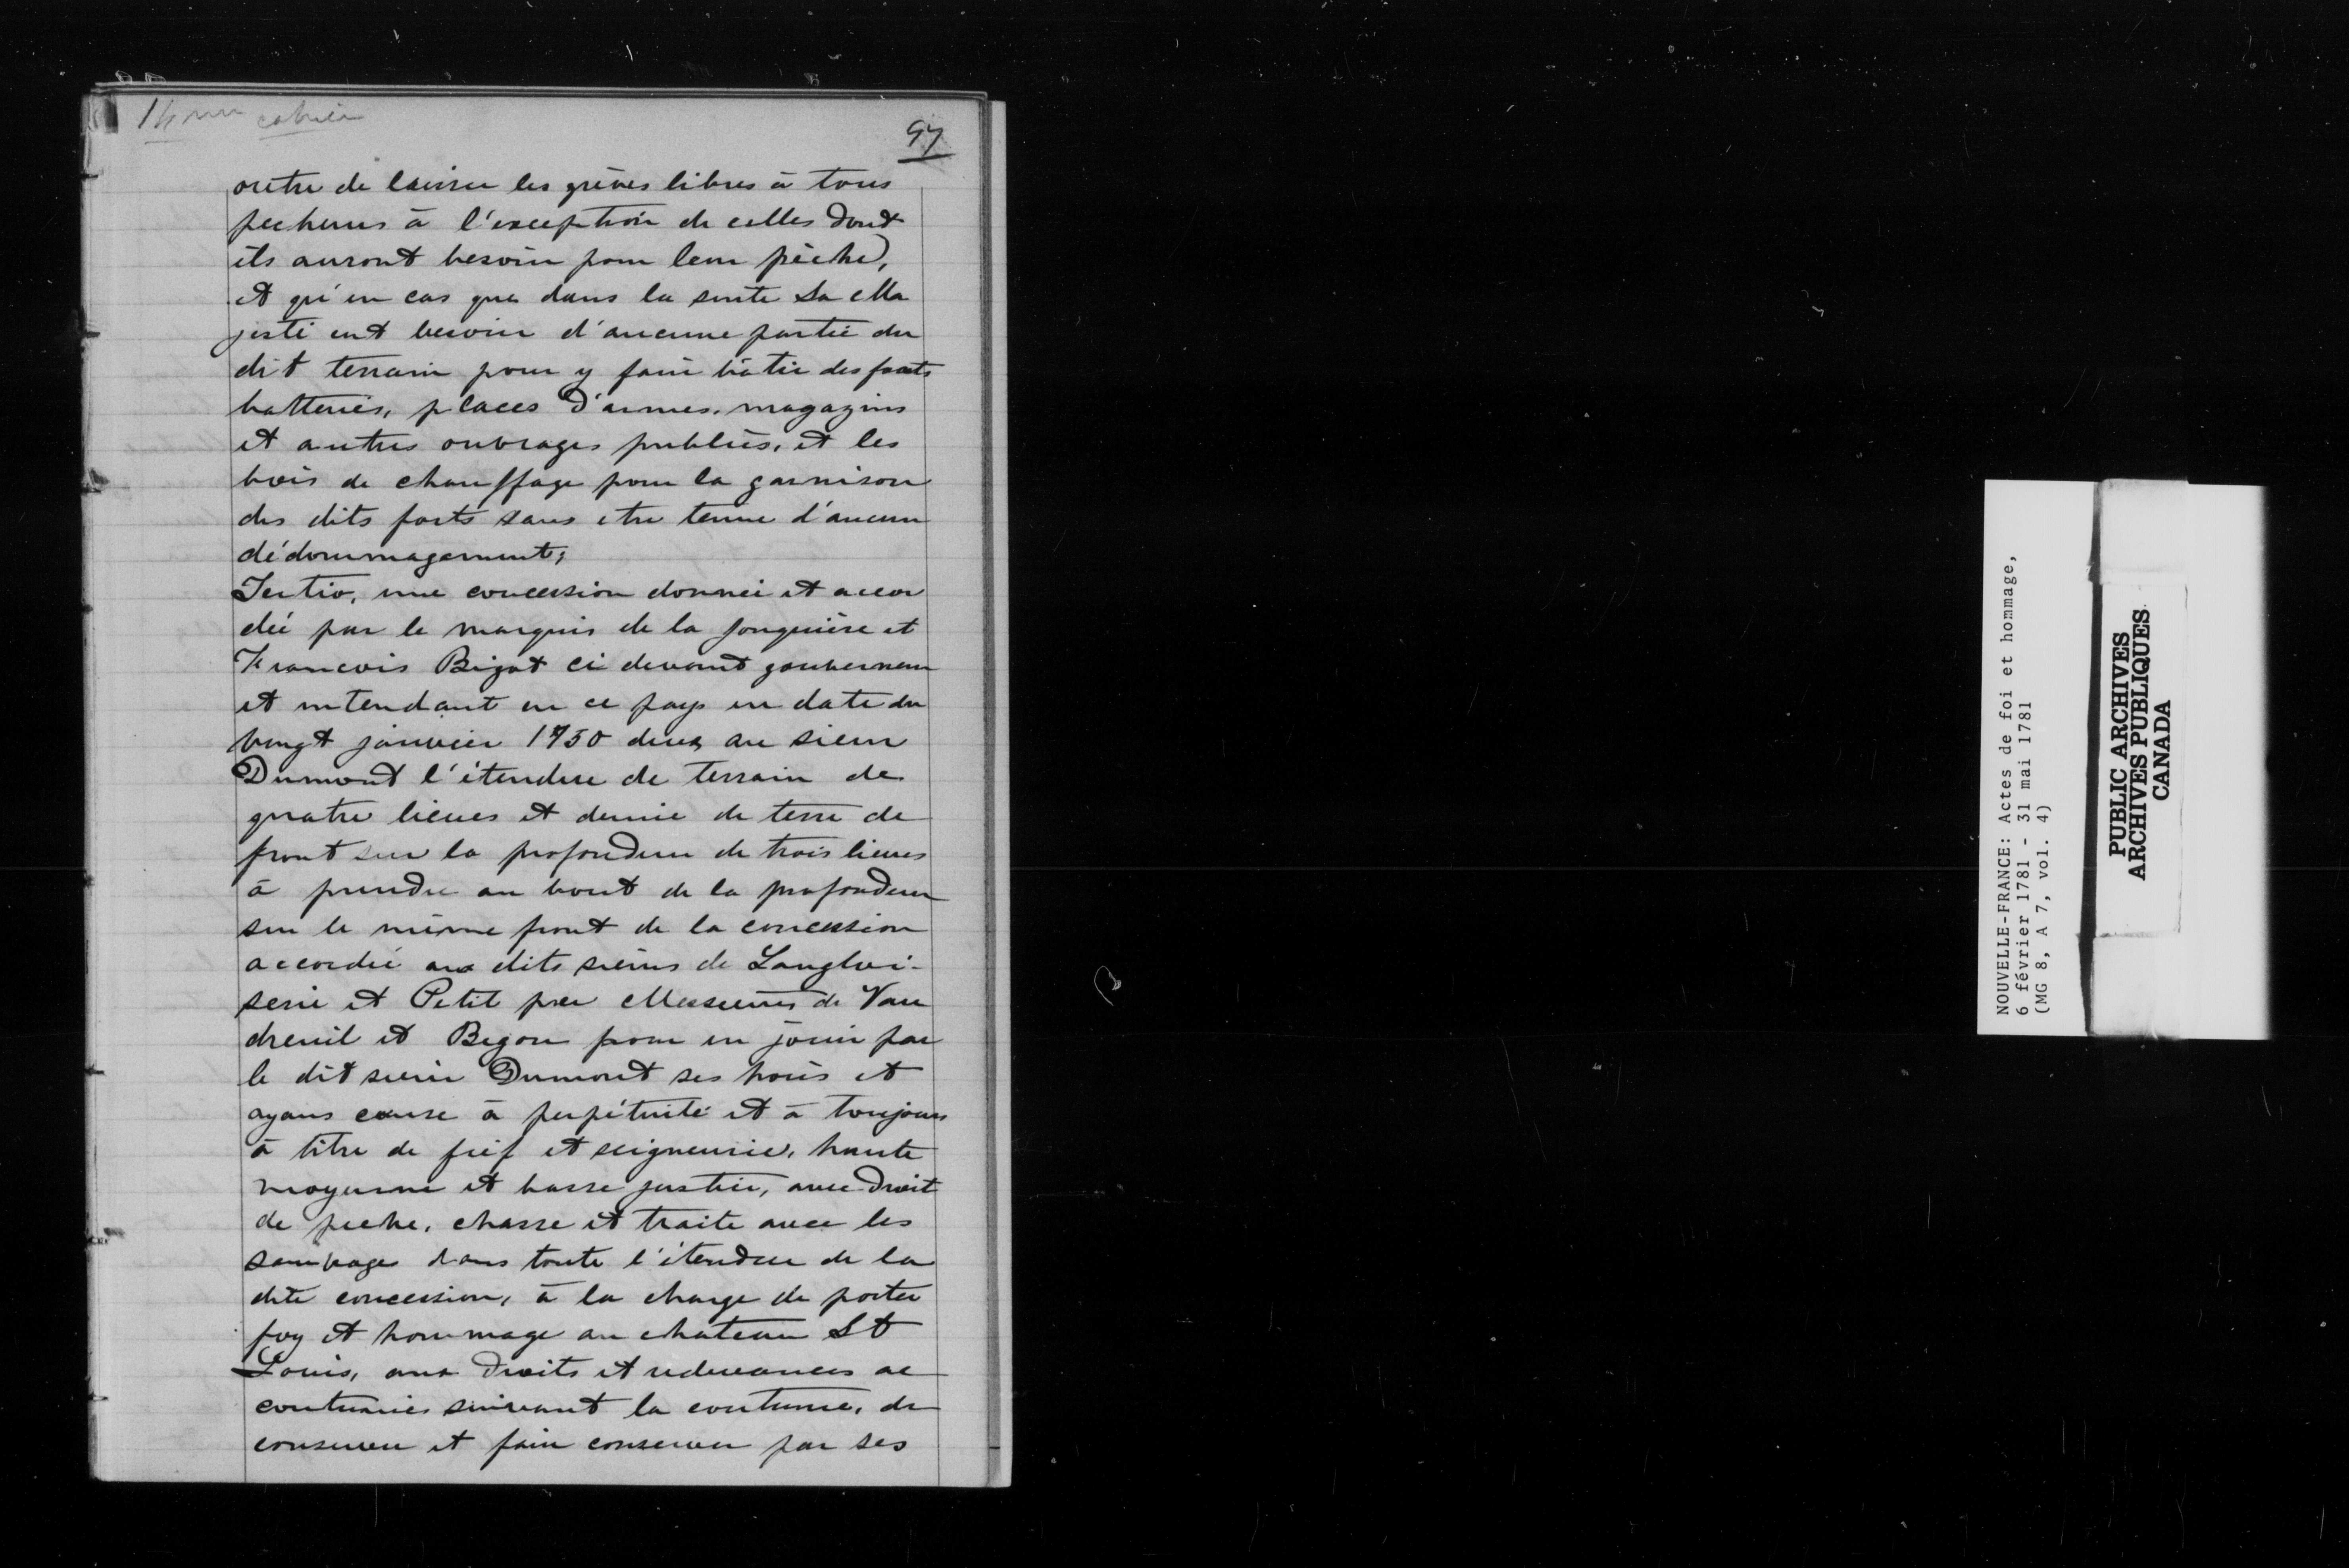 14me cahier
97
outre de laisser les grèves libres à tous
pecheurs à l'exception de celles dont
ils auront besoin pour leur pèche,
et qu'en cas que dans la suite Sa Ma
jesté eut besoin d'aucune partie du
dit terrain pour y faire bâtir des forts
batteries, places d'armes, magazins
et autres ouvrages publics, et les
bois de chauffage pour la garnison
des dits forts sans etre tenue d'aucun
dédommagement;
Tertio, une concession donnée et accor
dée par le marquis de la Jonquière et
Francois Bigot ci devant gouverneur
et intendant en ce pays en date du
vingt janvier 1750 au sieur
Dumont l'étendue de terrain de
quatre lieues et demie de terre de
front sur la profondeur de trois lieues
à prendre au bout de la profondeur
sur le même front de la concession
accordée aux dits sieurs de Langloi-
serie et Petit par Messieurs de Vau
dreuil et Begon pour en jouir par
le dit sieur Dumont ses hoirs et
ayans cause à perpétuité et à toujours
à titre de fief et seigneurie, haute
moyenne et basse justice, avec droit
de peche, chasse et traite avec les
sauvages dans toute l'étendue de la
dite concession, à la charge de porter
foy et hommage au chateau St
Louis, aux droits et redevances ac
coutumés suivant la coutume, de
conserver et faire conserver par ses
NOUVELLE-FRANCE: Actes de foi et hommage,
6 février 1781 - 31 mai 1781
(MG 8, A 7, vol. 4)
PUBLIC ARCHIVES
ARCHIVES PUBLIQUES
CANADA